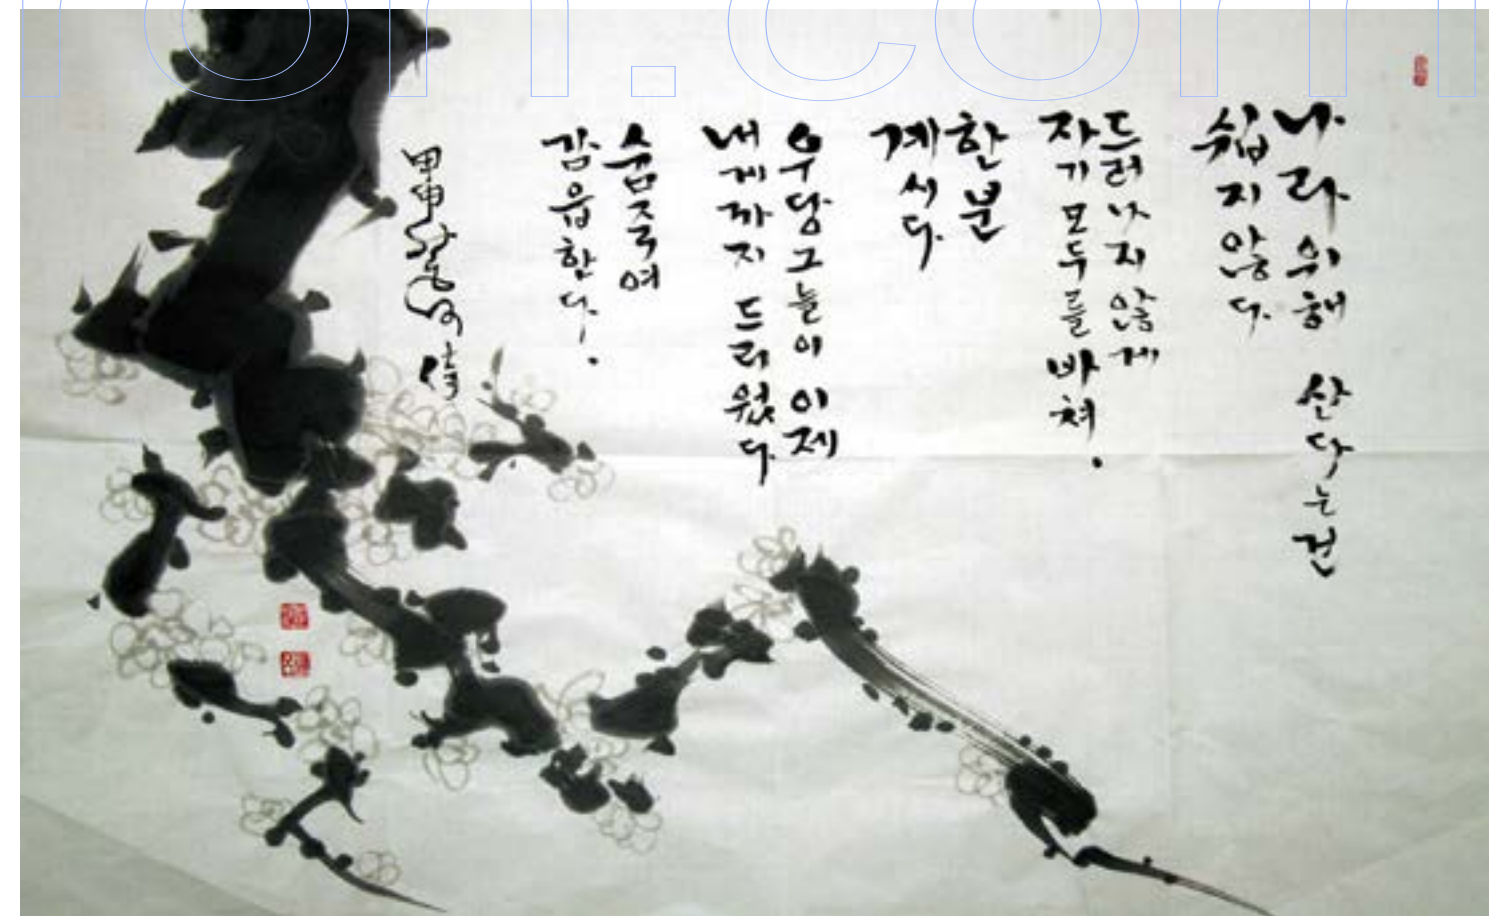 on.com
나라 위해 산다는건
쉽지 않다.
드러나지 않게
자기 모두를 바쳐.
한분
계시다.
우당 그늘이 이제
내게까지 드리웠다.
숨죽여
감읍한다.
甲申